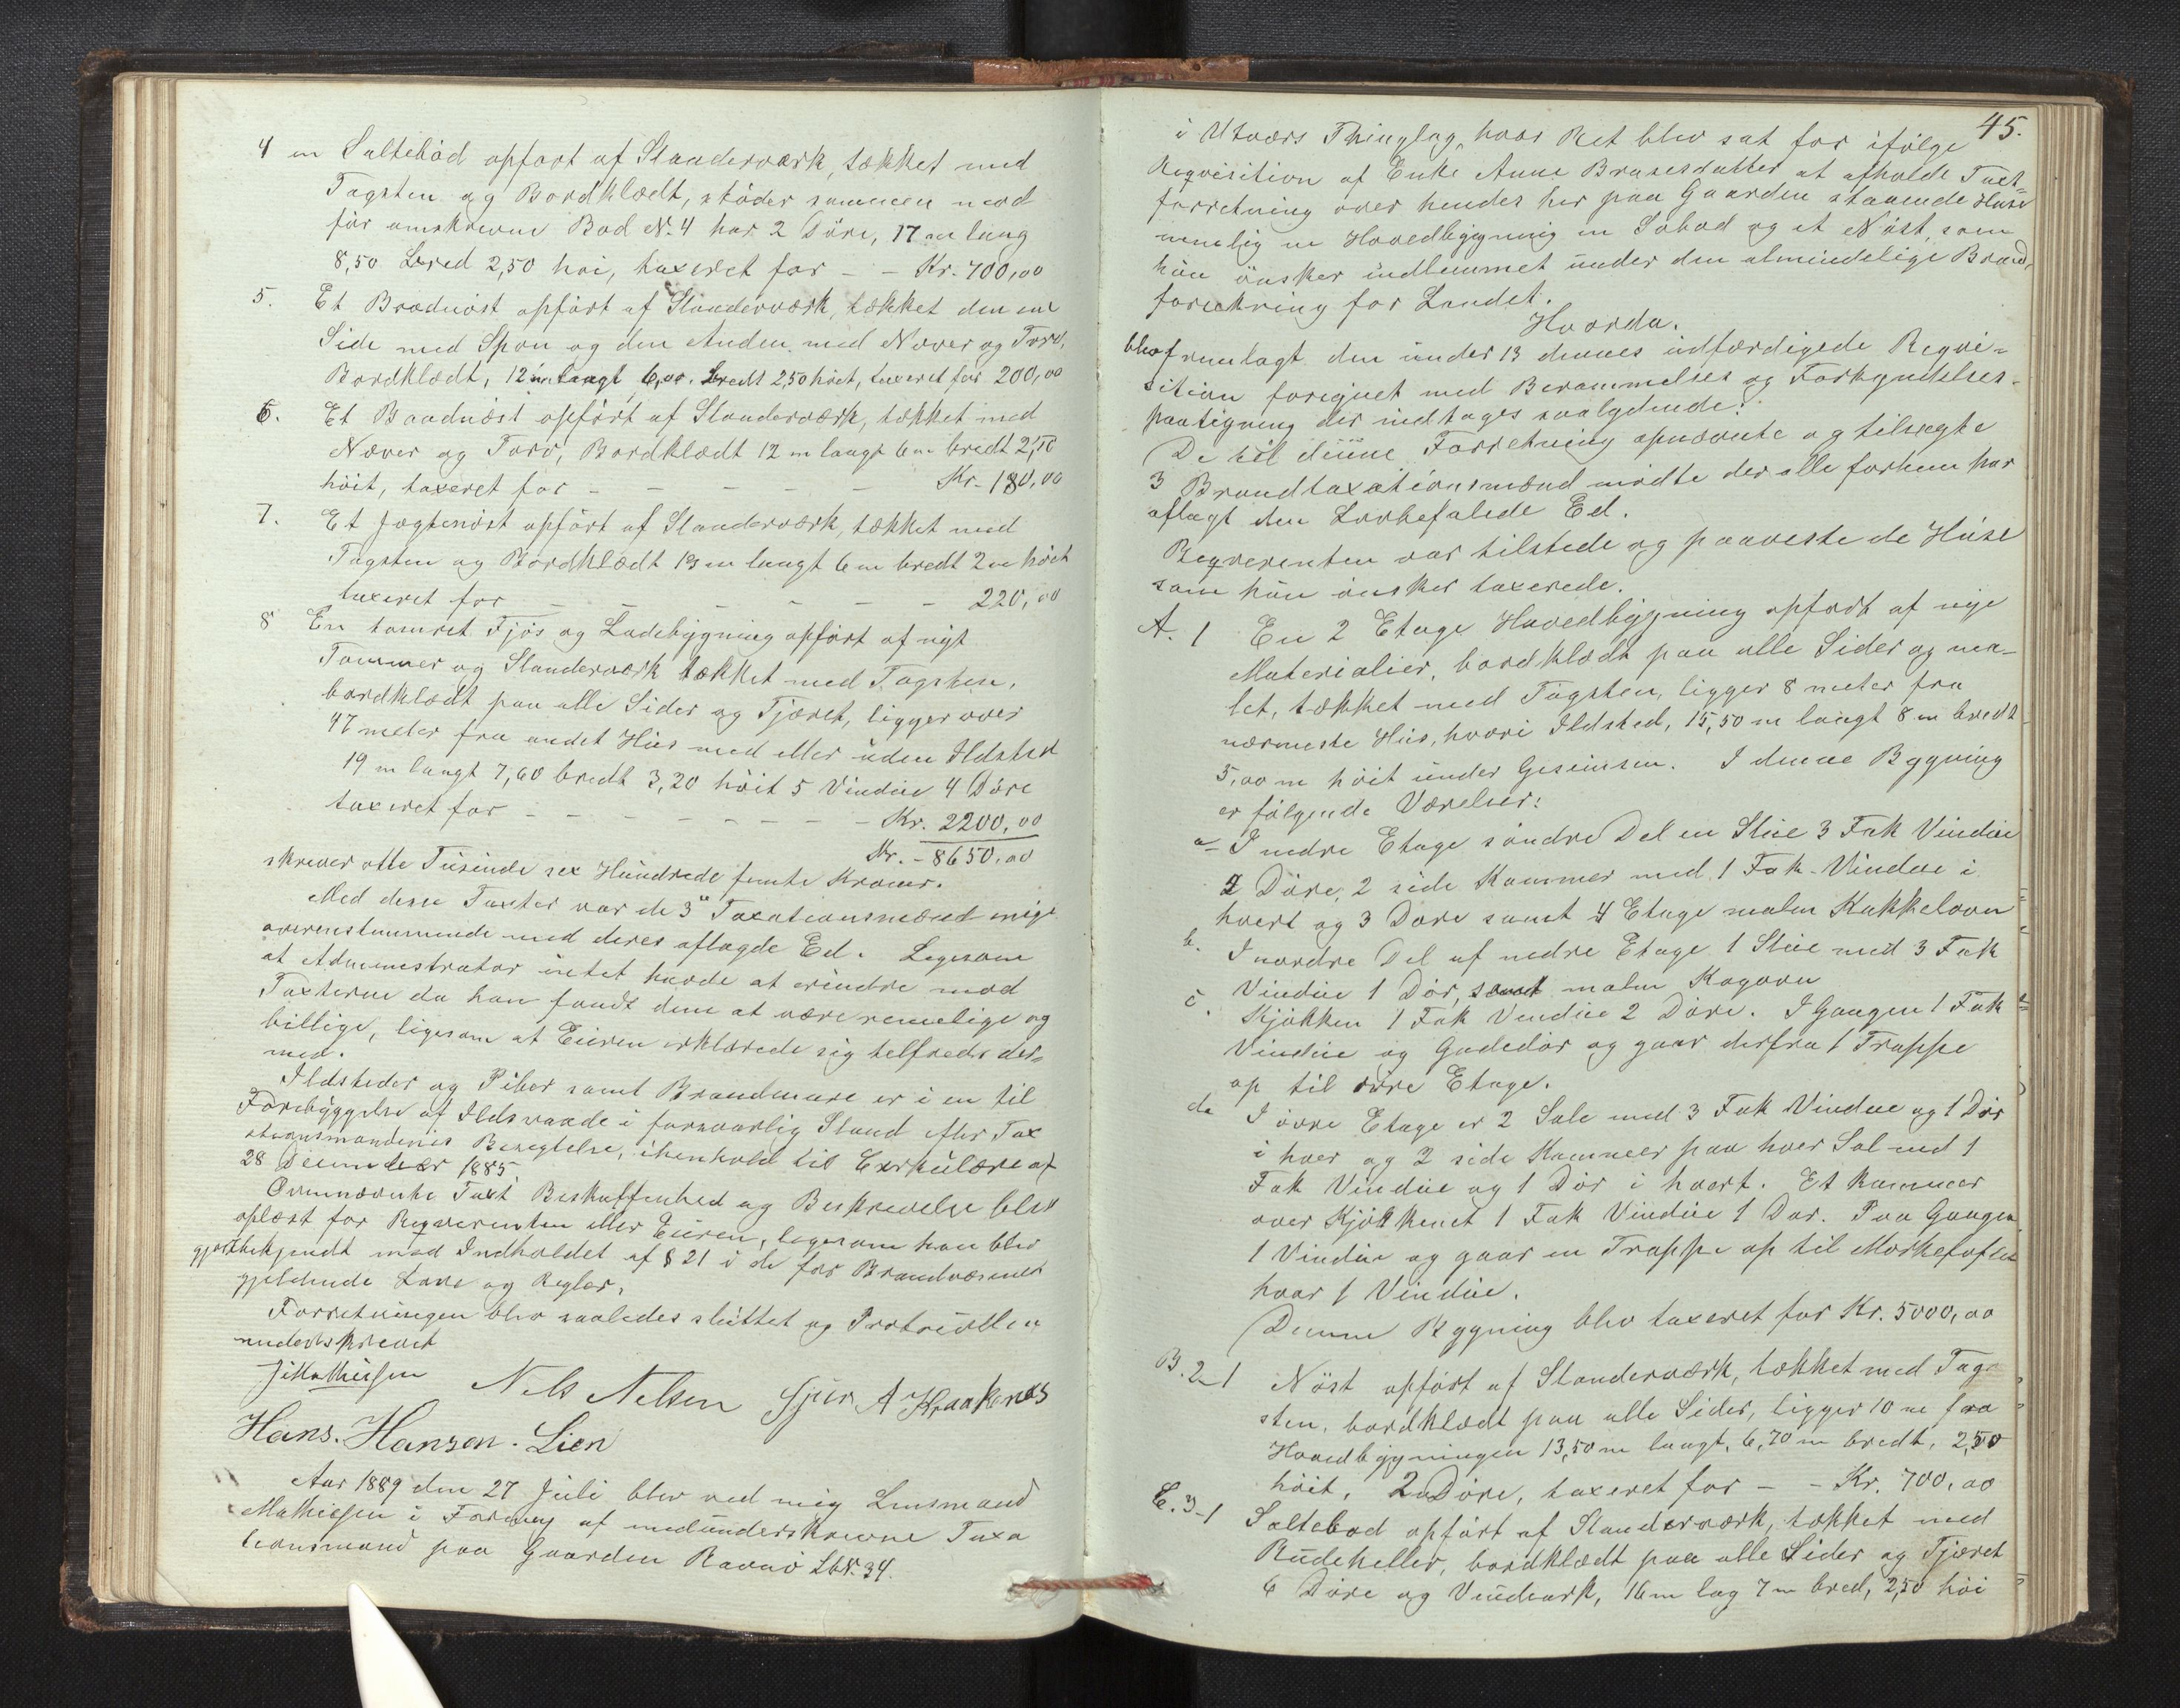 4 en Saltebod opført af Standerværk, tækket med
Tagsten og Bordklædt, støder sammen med
før omskrevne Bod N. 4 har 2 Döre, 17 m lang
8,50 Bred 2,50 høi, taxeret for - - Kr. 700,00
5. Et Brødnøst opført af Standerværk, tækket den ene
Side med Spon og den Anden med Næver og Torv,
Bordklædt, 12 m langt 6,00. bredt 2,50 høit, taxeret for 200,00
6. Et Baadnøst opført af Standerværk, tækket med
Næver og Torv, Bordklædt 12 m langt 6 m bredt 2,50
höit, taxeret for - - - - - Kr. 180,00
7. Et Jægtenöst opført af Standerværk, tækket med
Tagsten og Bordklædt 13 m langt 6 m bredt 2 m höit
taxeret for - - - - - - 220,00
8 En tømret Fjös og Ladebygning opført af nyt
Tømmer og Standerværk tækket med Tagsten,
bordklædt paa alle Sider og Tjæret, ligger over
47 meter fra andet Hus med eller uden Ildsted
19 m langt 7,60 bredt 3,20 höit 5 Vindue 4 Döre
taxeret for - - - - - - - - Kr. 2200,00
Kr. - 8650,00
skrever otte Tusinde sex Hundrede femti Kroner.
Med disse Taxter var de 3de Taxationsmænd enige
overenstemmende med deres aflagde Ed. Ligesom
at Administrator intet havde at erindre mod
Taxterne da han fandt dem at være rimelige og
billige, ligesom at Eieren erklærede sig tilfreds der-
med.
Ildsteder og Piber samt Brandmure er i en til
Forebyggelse af Ildsvaade i forsvarlig Stand efter Tax
ationsmændenis Besigtelse, ihenhold til Cirkulære af
28 December 1885
Ovennævnte Taxt Beskaffenhed og Beskrivelse blev
oplæst for Reqverenten eller Eieren, ligesom han blev
gjort bekjendt med Indholdet af § 21 i de for Brandvæsenet
gjeldende Love og Regler.
Forretningen blev saaledes sluttet og Protocollen
underskrevet
J Mathiesen Nils Nelsen Sjur A Kraakenes
Hans. Hansen. Lien
Aar 1889 den 27 Juli blev ved mig Lensmand
Mathiesen i Forening af medunderskrevne Taxa
tionsmænd paa Gaarden Ravnö LbN. 34.
45.
i Utvær Thinglag, hvor Ret blev sat for ifølge
Reqvisition af Enke Anne Brasesdatter at afholde Taxt-
forretning over hendes her paa Gaarden staaende Huse
nemlig en Hovedbygning en Söbod og et Nöst, som
hun önsker indlemmet under den almindelige Brand-
forsikring for Landet.
Hvorda.
blev fremlagt den under 13 dennes udfærdigede Reqvi-
sition foregnet med Berammelses og Forkyndelses-
paategning der indtages saalydende:
De til denne Forretning opnævnte og tilsagte
3 Brandtaxationsmænd mödte der alle forhen har
aflagt den Lovbefalede Ed.
Reqverenten var tilstede og paaveste de Huse
som hun önsker taxerede.
A. 1 En 2 Etage Hovedbygning opført af nye
Materialier, bordklædt paa alle Sider og ma-
let, tækket med Tagsten, ligger 8 meter fra
nærmeste Hus, hvori Ildsted, 15,50 m langt 8 m bredt
5,00 m höit under Gesimsen. I denne Bygning
er følgende Værelser:
a- I nedre Etage söndre Del en Stue 3 Fak Vindue
2 Döre, 2 side Kammer med 1 Fak-Vindue i
hvert og 3 Döre samt 4 Etage malm Kakkelovn
b. I nordre Del af nedre Etage 1 Stue med 3 Fak
Vindue 1 Dör, samt malm Kogovn
c. Kjökken 1 Fak Vindue 2 Döre. I Gangen 1 Fak
Vindue og Gadedör og gaar derfra 1 Trappe
op til övre Etage.
d. I övre Etage er 2 Sale med 3 Fak Vindue og 1 Dör
i hver og 2 side Kammer paa hver Sal med 1
Fak Vindue og 1 Dör i hvert. Et Kammer
over Kjökkenet 1 Fak Vindue 1 Dör. Paa Gangen
1 Vindue og gaar en Trappe op til Mörkeloftet
hvor 1 Vindue.
Denne Bygning blev taxeret for Kr. 5000,00
B. 2-1 Nöst opført af Standerværk, tækket med Tag-
sten, bordklædt paa alle Sider, ligger 10 m fra
Hovedbygningen 13,50 m langt, 6,70 m bredt, 2,50
höit, 2 Döre, taxeret for - - Kr. 700,00
C. 3-1 Saltebod opført af Standerværk, tækket med
Rudeheller, bordklædt paa alle Sider og Tjæret
6 Döre og Vindeark, 16 m lag 7 m bred, 2,50 höi